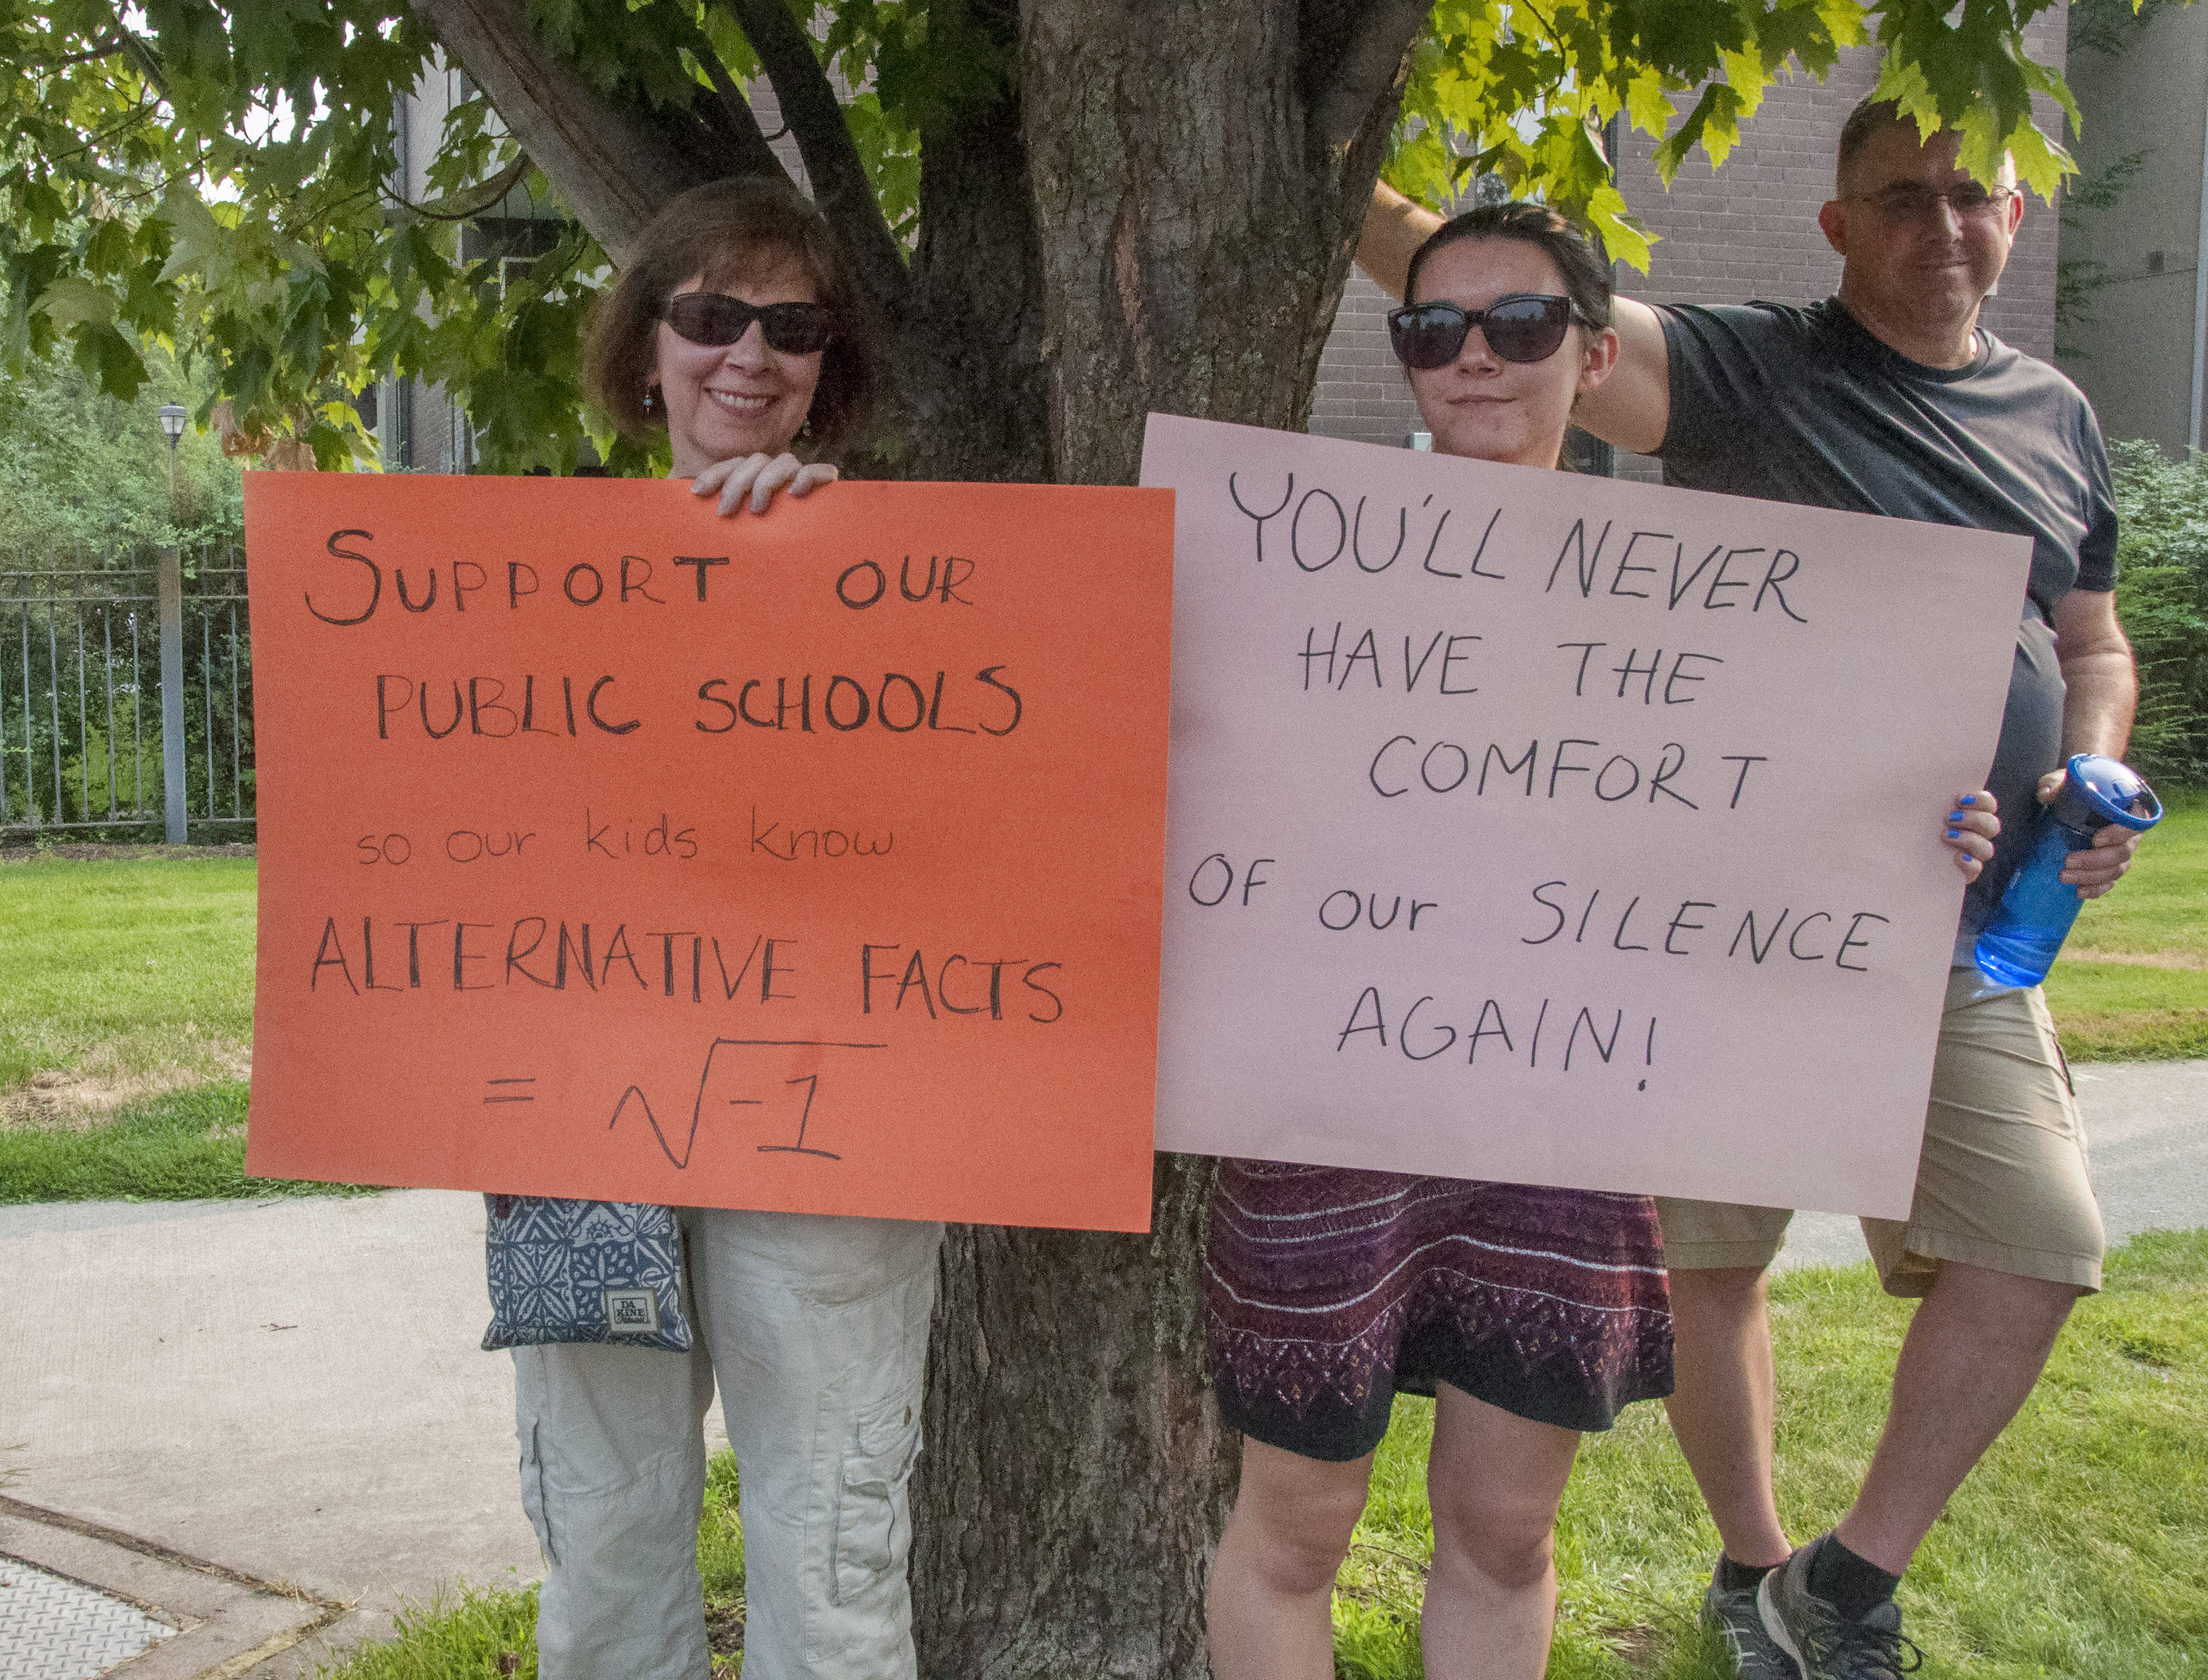 SUPPORT OUR
PUBLIC SCHOOLS
so our kids know
ALTERNATIVE FACTS
= √-1
YOU'LL NEVER
HAVE THE
COMFORT
OF our SILENCE
AGAIN!
DA
KINE